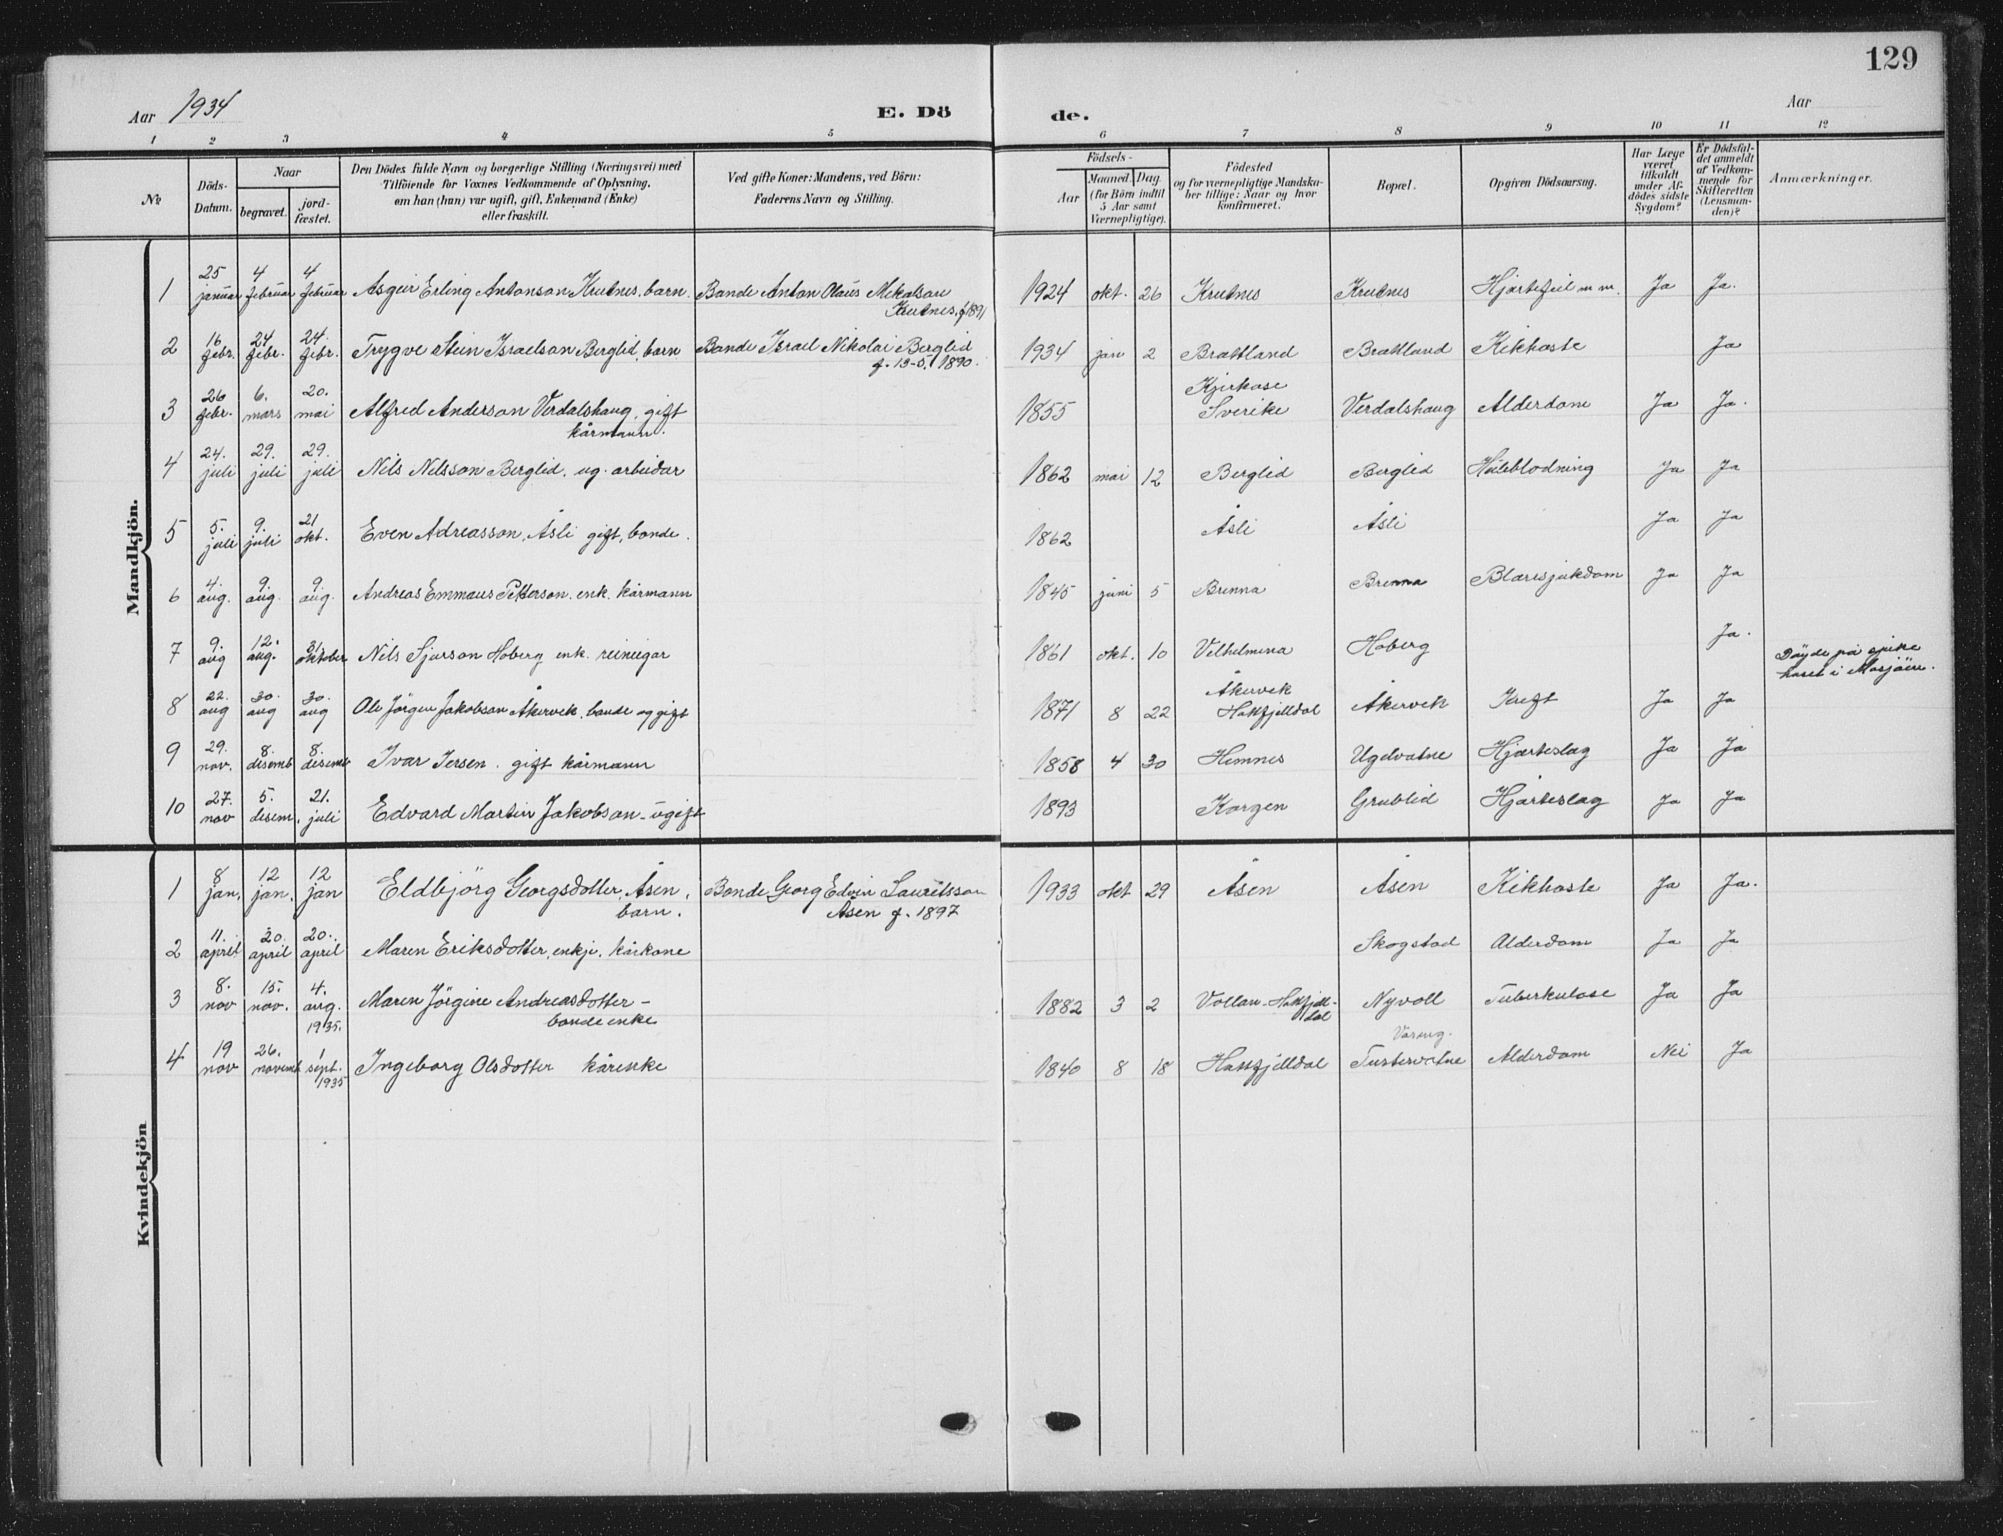 129
Aar 1934
E. Dö
de.
Aar
1 2 3 4 5 6 7 8 9 10 11 12
№
Döds-
Datum.
Naar
begravet.
jord-
fæstet.
Den Dödes fulde Navn og borgerlige Stilling (Næringsvei) med
Tilföiende for Voxnes Vedkommende af Oplysning,
om han (hun) var ugift, gift, Enkemand (Enke)
eller fraskilt.
Ved gifte Koner: Mandens, ved Börn:
Faderens Navn og Stilling.
Födsels-
Aar
Maaned. Dag
(for Börn indtil
5 Aar samt
Værnepligtige).
Födested
og for værnepligtige Mandska-
ber tillige: Naar og hvor
konfirmeret.
Bopæl.
Opgiven Dödsaarsag.
Har Læge
været
tilkaldt
under Af-
dödes sidste
Sygdom?
Er Dödsfal-
det anmeldt
af Vedkom-
mende for
Skifteretten
(Lensman-
den)?
Anmærkninger.
Mandkjön.
1 25 januar 4 februar 4 februar Asgeir Erling Antonson Krutnes, barn. Bonde Anton Olaus Mikalson Krutnes, f 1891 1924 okt. 26 Krutnes Krutnes Hjartefeil m m. Ja Ja.
2 16 febr. 24 febr. 24. febr. Trygve Stein Israelson Berglid, barn Bonde Israel Nikolai Berglid f. 13-5. 1890. 1934 jan 2 Brattland Brattland Kikhoste Ja
3 26 febr. 6. mars 20. mai Alfred Anderson Verdalshaug, gift kårmann. 1855 Sverike Verdalshaug Alderdom Ja Ja.
4 24. juli 29. juli 29. juli Nils Nilsson Berglid. ug. arbeidar 1862 mai 12 Berglid Berglid Ja Ja
5 5. juli 9. juli 21 okt. Even Adreasson, Åsli gift, bonde. 1862 Åsli Åsli Ja Ja
6 4. aug. 9. aug. 9. aug. Andreas Emmaus Petterson. enk. kårmann 1845 juni 5 Brenna Brenna Blæresjukdom Ja Ja
7 9. aug 12. aug. 31 oktober Nils Sjurson Hoberg enk. reineigar 1861 okt. 10 Vilhelmina Hoberg Ja. Döyde på sjuke huset i Mosjöen.
8 22. aug 30. aug 30. aug Ole Jörgen Jakobson Åkervik. bonde og gift 1871 8 22 Åkervik Hattfjelldal Åkervik Kreft Ja Ja
9 29. nov. 8. desemb 8. desemb Ivar Iversen. gift kårmann 1858 4 30 Hemnes Ugelvatne Hjarteslag Ja Ja
10 27. nov 5. desem. 21. juli Edvard Martin Jakobson - ugift 1893 Korgen Grublid Hjarteslag Ja Ja
Kvindekjön
1 8 jan. 12 jan. 12 jan Eldbjörg Georgsdotter, Åsen, barn. Bonde Georg Edvin Lauritsson Åsen f. 1897 1933 okt 29 Åsen Åsen Kikhoste Ja Ja.
2 11. april 20. april 20. april Maren Eriksdotter, enkje. kårkone Skogstad Alderdom Ja Ja
3 8. nov 15. nov. 4. aug. 1935. Maren Jörgine Andreasdotter - bonde enke 1882 3 2 Vollan - Hattfjell-dal Nyvoll Tuberkulose Ja Ja
4 19 nov 26. novemb 1 sept. 1935 Ingeborg Olsdotter kårenke 1840 8 18 Hattfjelldal Tustervatne Alderdom Nei Ja